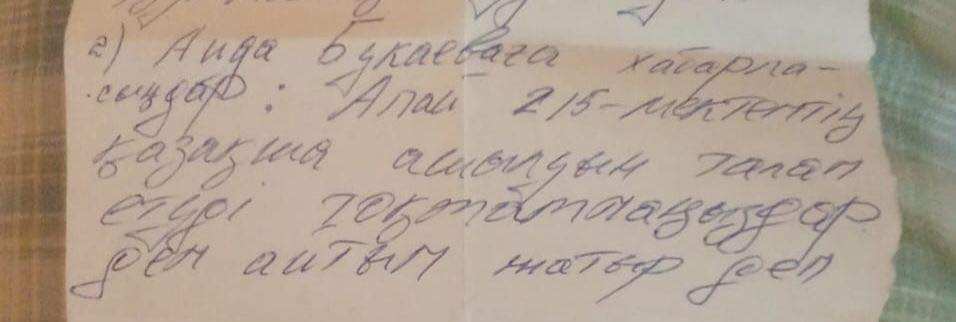 2) Аида Бұкаеваға хабарла-
сыңдар: Апай 215-мектептің
қазақша ашылуын талап
етуді тоқтатпаңыздар
деп айтып жатыр деп